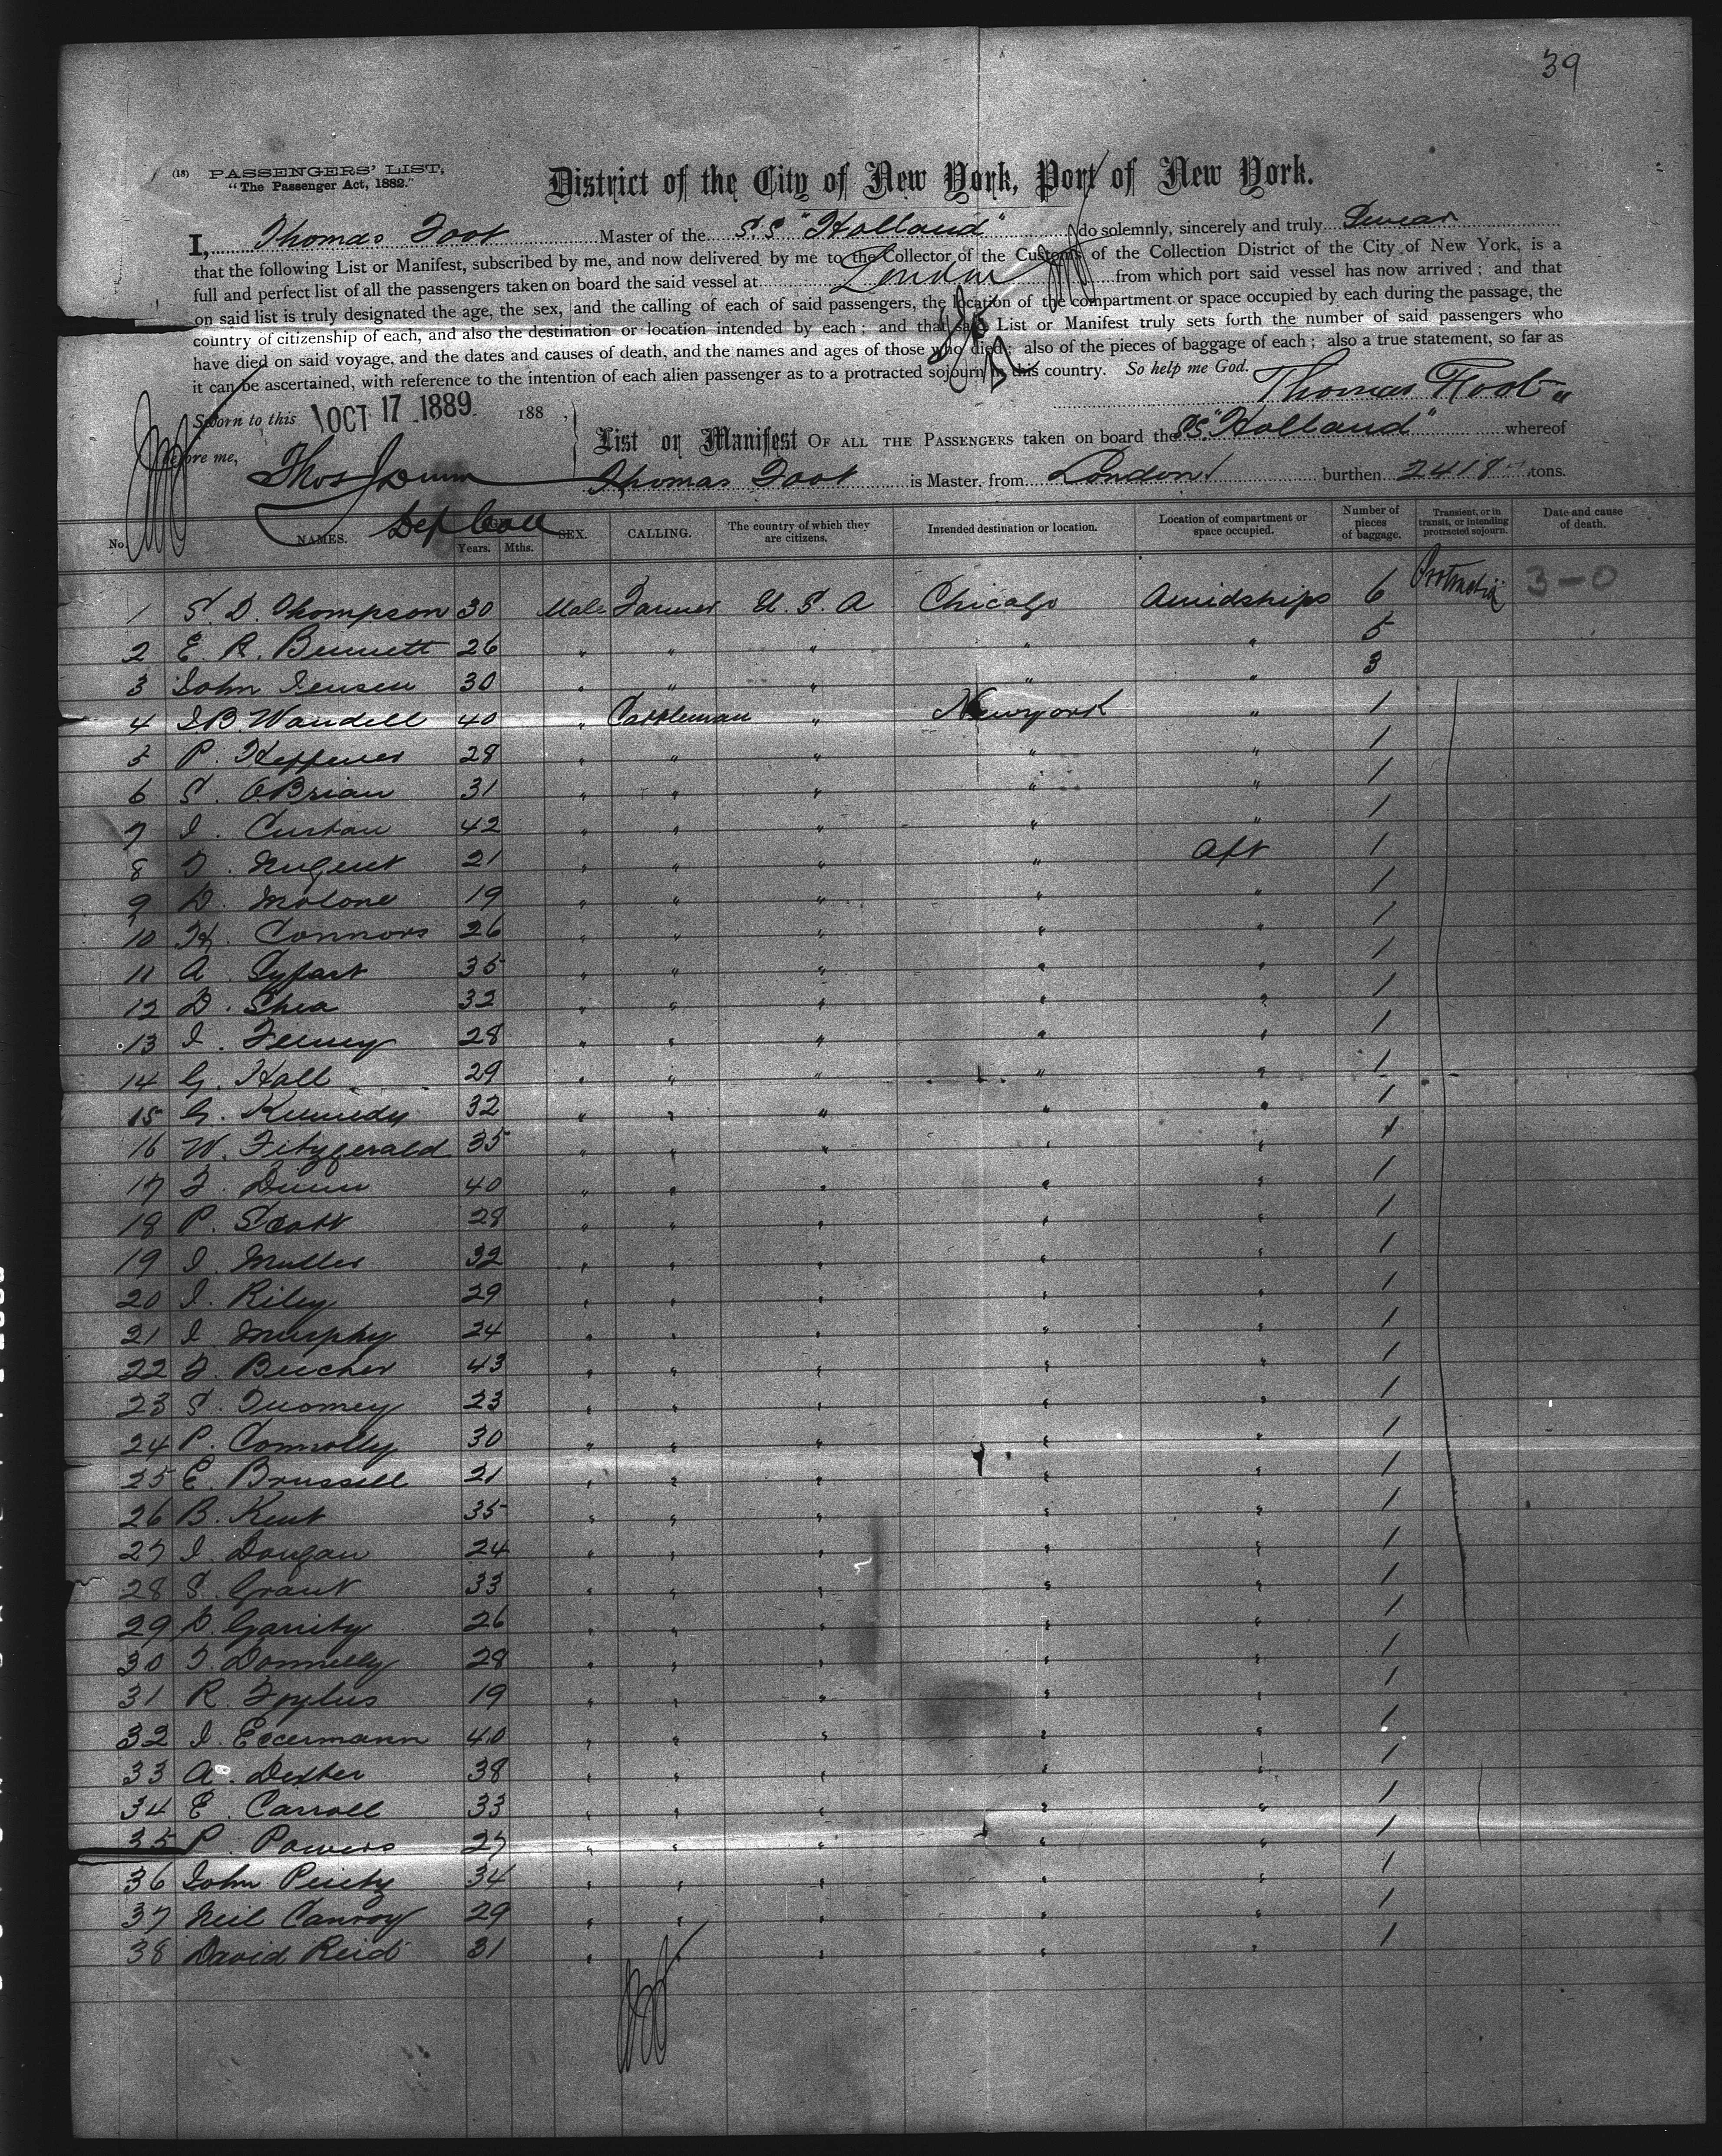 39
(18) PASSENGERS' LIST,
"The Passenger Act, 1882."
District of the City of New York, Port of New York.
I, Thomas Foot Master of the S.S "Holland" do solemnly, sincerely and truly Swear
that the following List or Manifest, subscribed by me, and now delivered by me to the Collector of the Customs of the Collection District of the City of New York, is a
full and perfect list of all the passengers taken on board the said vessel at London from which port said vessel has now arrived; and that
on said list is truly designated the age, the sex, and the calling of each of said passengers, the location of the compartment or space occupied by each during the passage, the
country of citizenship of each, and also the destination or location intended by each; and that said List or Manifest truly sets forth the number of said passengers who
have died on said voyage, and the dates and causes of death, and the names and ages of those who died; also of the pieces of baggage of each; also a true statement, so far as
it can be ascertained, with reference to the intention of each alien passenger as to a protracted sojourn in this country. So help me God.
Thomas Foot
Sworn to this OCT 17 1889 188 ,
before me,
Thos Dunn
Dep Coll
List or Manifest OF ALL THE PASSENGERS taken on board the SS "Holland" whereof
Thomas Foot is Master, from London burthen 2418 tons.
No. NAMES. Years. Mths. SEX. CALLING. The country of which they are citizens. Intended destination or location. Location of compartment or space occupied. Number of pieces of baggage. Transient, or in transit, or intending protracted sojourn. Date and cause of death.
1 S. D. Thompson 30 Male Farmer U. S. A Chicago Amidships 6 3-0
2 E. R. Bennett 26 " " " " " 5
3 John Jensen 30 " " " " " 3
4 J B. Wandell 40 " Cattleman " Newyork " 1
5 P. Heffener 28 " " " " " 1
6 S. O.Brian 31 " " " " " 1
7 J. Curtan 42 " " " " " 1
8 T. Nugent 21 " " " " Aft 1
9 D. Molone 19 " " " " " 1
10 H. Connors 26 " " " " " 1
11 A. 35 " " " " " 1
12 D. Shea 32 " " " " " 1
13 J. Feeney 28 " " " " " 1
14 G. Hall 29 " " " " " 1
15 G. Kennedy 32 " " " " " 1
16 W. Fitzgerald 35 " " " " " 1
17 F. Dunn 40 " " " " " 1
18 P. Scott 28 " " " " " 1
19 J. Muller 32 " " " " " 1
20 J. Riley 29 " " " " " 1
21 J. Murphy 24 " " " " " 1
22 F. Beecher 43 " " " " " 1
23 S. Twomey 23 " " " " " 1
24 P. Connolly 30 " " " " " 1
25 E. Brussell 21 " " " " " 1
26 B. Kent 35 " " " " " 1
27 J. Dougan 24 " " " " " 1
28 S. Grant 33 " " " " " 1
29 P. Garrity 26 " " " " " 1
30 T. Donnelly 28 " " " " " 1
31 R. 19 " " " " " 1
32 J. Eccermann 40 " " " " " 1
33 A. Dexter 38 " " " " " 1
34 E. Carroll 33 " " " " " 1
35 P. Powers 27 " " " " " 1
36 John 34 " " " " " 1
37 Neil Canroy 29 " " " " " 1
38 David Reid 31 " " " " " 1